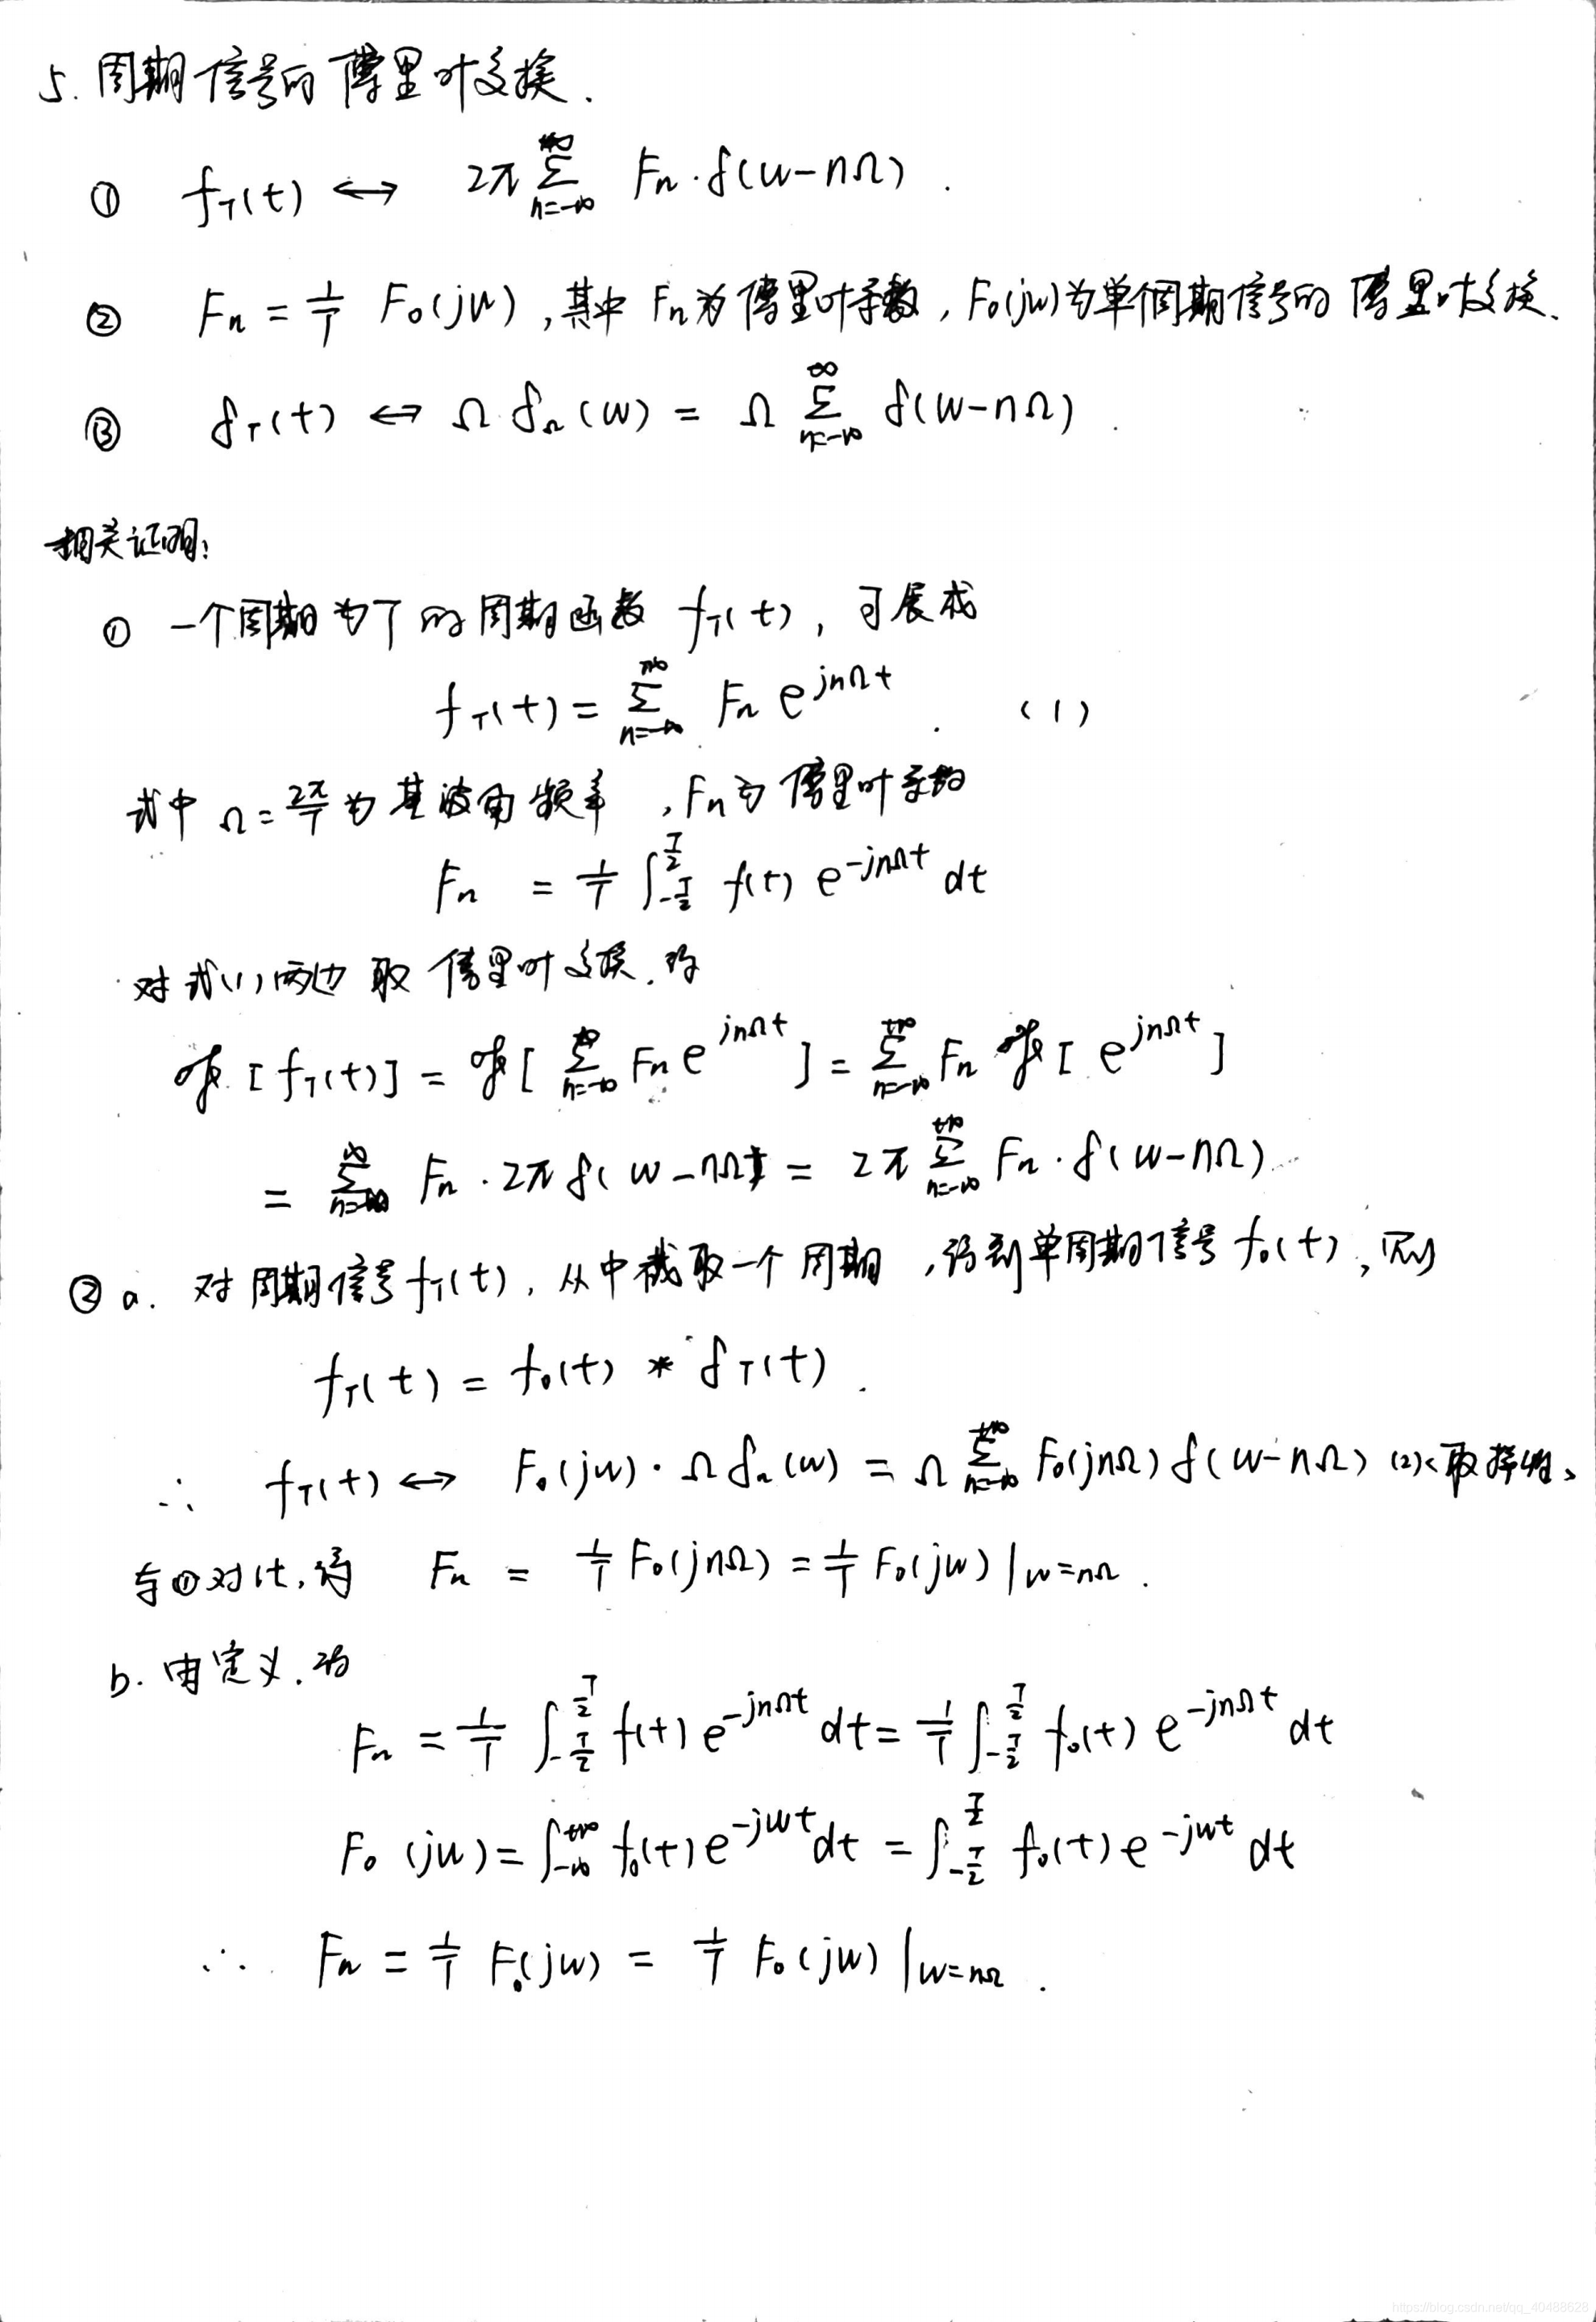 5. 周期信号的傅里叶变换.
① f_T(t) ↔ 2π ∑_{n=-∞}^{+∞} F_n · δ(w-nΩ) .
② F_n = 1/T F_0(jw) , 其中 F_n为傅里叶系数, F_0(jw)为单个周期信号的傅里叶变换.
③ δ_T(t) ↔ Ω δ_Ω(w) = Ω ∑_{n=-∞}^{∞} δ(w-nΩ) .
相关证明:
① 一个周期为T的周期函数 f_T(t), 可展成
f_T(t) = ∑_{n=-∞}^{+∞} F_n e^{jnΩt} . (1)
式中 Ω = 2π/T 为基波角频率 , F_n为傅里叶系数
F_n = 1/T ∫_{-T/2}^{T/2} f(t) e^{-jnΩt} dt
对式(1)两边取傅里叶变换. 得
ℱ[f_T(t)] = ℱ[∑_{n=-∞}^{∞} F_n e^{jnΩt}] = ∑_{n=-∞}^{+∞} F_n ℱ[e^{jnΩt}]
= ∑_{n=-∞}^{∞} F_n · 2π δ(w-nΩ) = 2π ∑_{n=-∞}^{+∞} F_n · δ(w-nΩ)
② a. 对周期信号f_T(t), 从中截取一个周期 , 得到单周期信号 f_0(t), 则
f_T(t) = f_0(t) * δ_T(t) .
∴ f_T(t) ↔ F_0(jw) · Ω δ_Ω(w) = Ω ∑_{n=-∞}^{+∞} F_0(jnΩ) δ(w-nΩ) (2)<取样性>
与①对比, 得 F_n = 1/T F_0(jnΩ) = 1/T F_0(jw) |_{w=nΩ} .
b. 由定义. 得
F_n = 1/T ∫_{-T/2}^{T/2} f(t) e^{-jnΩt} dt = 1/T ∫_{-T/2}^{T/2} f_0(t) e^{-jnΩt} dt
F_0(jw) = ∫_{-∞}^{+∞} f_0(t) e^{-jwt} dt = ∫_{-T/2}^{T/2} f_0(t) e^{-jwt} dt
∴ F_n = 1/T F_0(jw) = 1/T F_0(jw) |_{w=nΩ} .
https://blog.csdn.net/qq_40488628